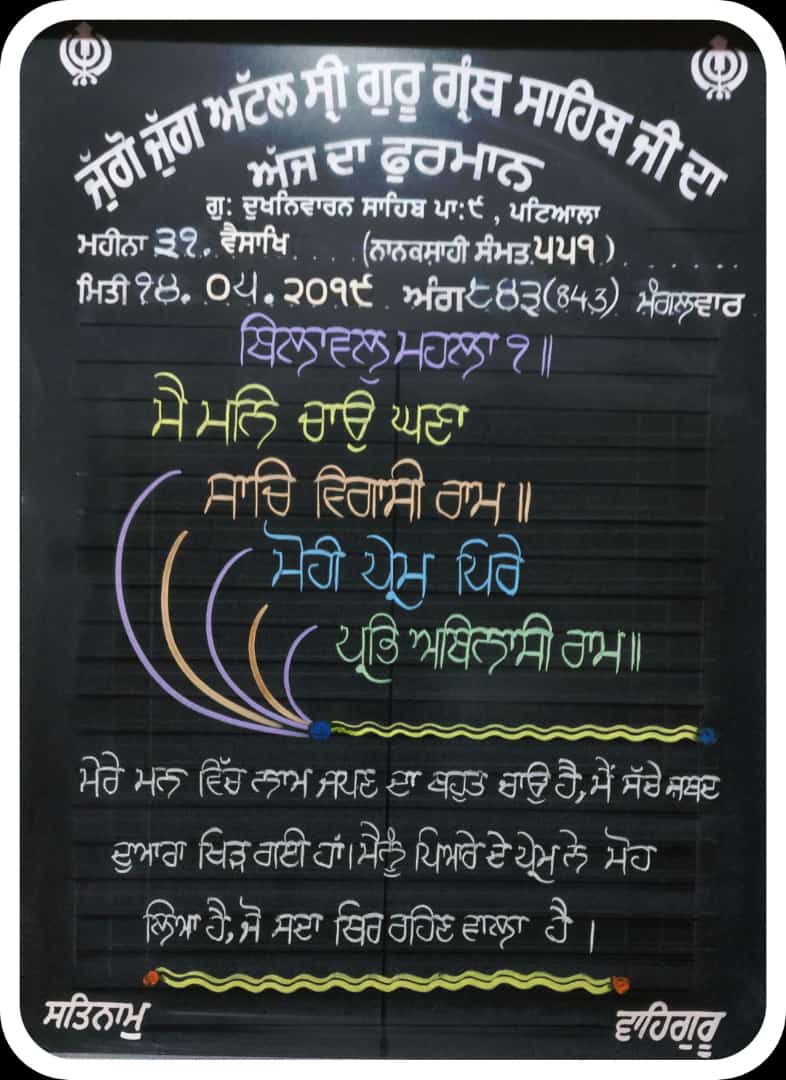 ਜੁੱਗੋ ਜੁੱਗ ਅਟੱਲ ਸ੍ਰੀ ਗੁਰੂ ਗ੍ਰੰਥ ਸਾਹਿਬ ਜੀ ਦਾ
ਅੱਜ ਦਾ ਫੁਰਮਾਨ
ਗੁ: ਦੁਖਨਿਵਾਰਨ ਸਾਹਿਬ ਪਾ:੯ , ਪਟਿਆਲਾ
ਮਹੀਨਾ ੩੧. ਵੈਸਾਖਿ (ਨਾਨਕਸ਼ਾਹੀ ਸੰਮਤ ੫੫੧)
ਮਿਤੀ ੧੪. ੦੫. ੨੦੧੯ ਅੰਗ ੮੪੩(843) ਮੰਗਲਵਾਰ
ਬਿਲਾਵਲੁ ਮਹਲਾ ੧॥
ਮੈ ਮਨਿ ਚਾਉ ਘਣਾ
ਸਾਚਿ ਵਿਗਾਸੀ ਰਾਮ॥
ਮੋਹੀ ਪ੍ਰੇਮ ਪਿਰੇ
ਪ੍ਰਭਿ ਅਬਿਨਾਸੀ ਰਾਮ॥
ਮੇਰੇ ਮਨ ਵਿੱਚ ਨਾਮ ਜਪਣ ਦਾ ਬਹੁਤ ਚਾਉ ਹੈ, ਮੈਂ ਸੱਚੇ ਸ਼ਬਦ
ਦੁਆਰਾ ਖਿੜ ਗਈ ਹਾਂ। ਮੈਨੂੰ ਪਿਆਰੇ ਦੇ ਪ੍ਰੇਮ ਨੇ ਮੋਹ
ਲਿਆ ਹੈ, ਜੋ ਸਦਾ ਥਿਰ ਰਹਿਣ ਵਾਲਾ ਹੈ।
ਸਤਿਨਾਮੁ ਵਾਹਿਗੁਰੂ